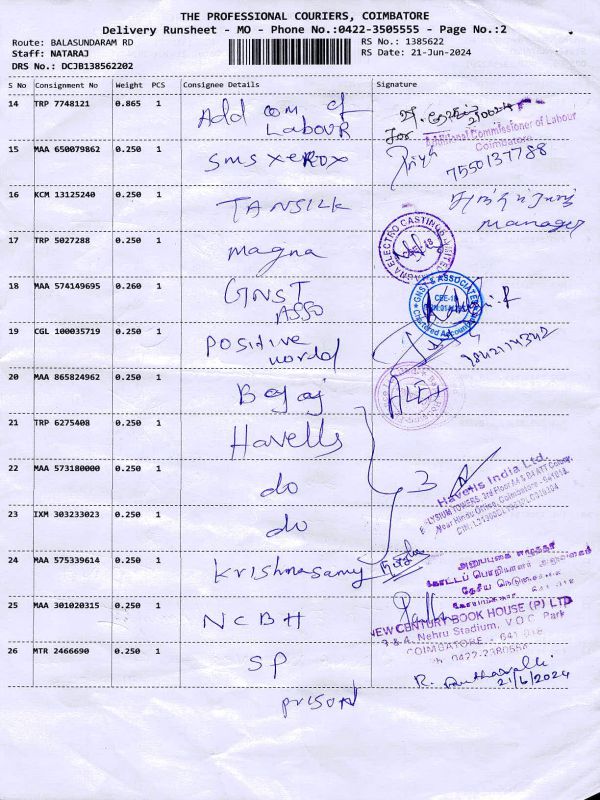 THE PROFESSIONAL COURIERS, COIMBATORE
Delivery Runsheet - MO - Phone No.:0422-3505555 - Page No.:2
Route: BALASUNDARAM RD
RS No.: 1385622
Staff: NATARAJ
RS Date: 21-Jun-2024
DRS No.: DCJB138562202
S No Consignment No Weight PCS Consignee Details Signature
14 TRP 7748121 0.865 1 Add com of
LABOUR
For
Additional Commissioner of Labour
Coimbatore
15 MAA 650079862 0.250 1 SMS XEROX
7550137788
16 KCM 13125240 0.250 1 TANSILK
Manager
17 TRP 5027288 0.250 1 magna
MAGNA ELECTRO CASTINGS LIMITED
18 MAA 574149695 0.260 1 GNST
ASSO
GNST & ASSOCIATES
CBE-18
Chartered Accountants
19 CGL 100035719 0.250 1 Positive
world
20 MAA 865824962 0.250 1 Bajaj
ALEX
21 TRP 6275408 0.250 1 Havells
22 MAA 573180000 0.250 1 do
3
Havells India Ltd.
23 IXM 303233023 0.250 1 do
24 MAA 575339614 0.250 1 Krishnasamy
25 MAA 301020315 0.250 1 NCBH
NEW CENTURY BOOK HOUSE (P) LTD
3 & A, Nehru Stadium, V.O.C. Park
COIMBATORE - 641 018
Ph. 0422-2380554
26 MTR 2466690 0.250 1 SP
prison
21/6/2024